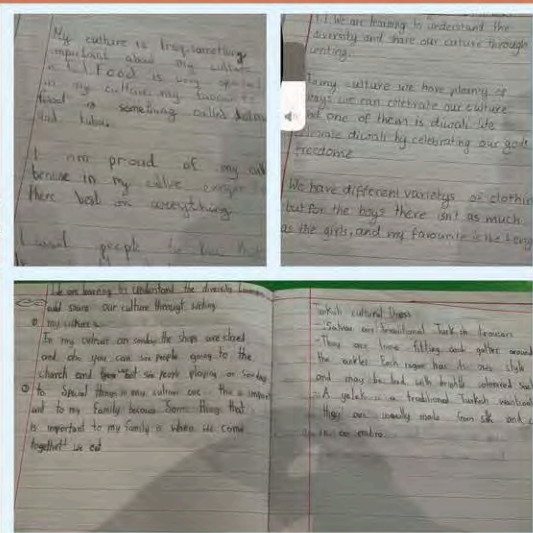 My culture is Iraq, something
important about my culture
is Food is very special
in my culture my favourite
food is something called dolma
and kubba.
I am proud of my cul
because in my cultre everyone
there best on everything
I want people to
L.I. We are learning to understand the
diversity and share our culture through
writing.
In my culture we have plenty of
ways we can celebrate our culture
and one of them is diwali. We
celebrate diwali by celebrating our gods
freedome
We have different varietys of clothin
but for the boys there isnt as much
as the girls, and my favourite is the
We are learning to understand the diversity
and share our culture through writing
my culture is
In my culture on sunday the shops are closed
and you can see people going to the
church and people playing on Sunday
to Special things in my culture are this is import
ant to my family because Some things that
is important to my family is when we come
together we eat
Turkish cultural Dress
- Salvar are traditional Turkish trousers
- They are loose fitting and gather around
the ankles. Each region has its own style
and may be tied with brightly coloured sash
- A yelek is a traditional Turkish waistcoat
They are usually made from silk and